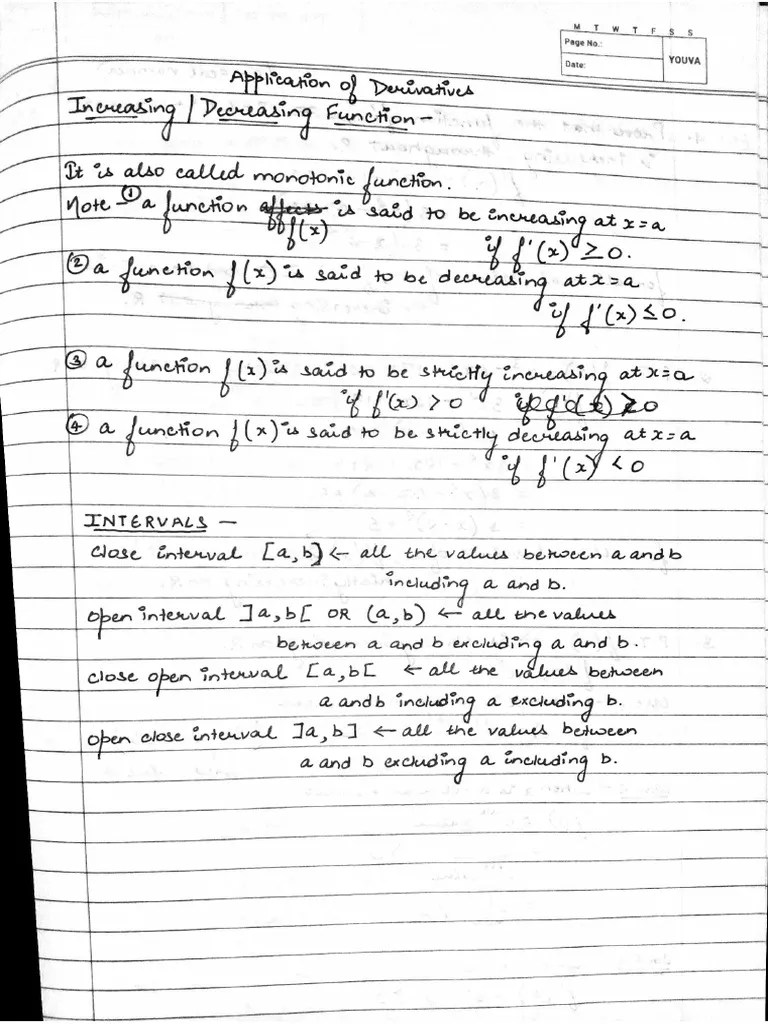 M T W T F S S
Page No.:
Date:
YOUVA
Application of Derivatives
Increasing / Decreasing Function -
It is also called monotonic function.
Note - ① a function is said to be increasing at x = a
f(x) if f'(x) ≥ 0.
② a function f(x) is said to be decreasing at x = a
if f'(x) ≤ 0.
③ a function f(x) is said to be strictly increasing at x = a
if f'(x) > 0
④ a function f(x) is said to be strictly decreasing at x = a
if f'(x) < 0
INTERVALS -
close interval [a, b] ← all the values between a and b
including a and b.
open interval ]a, b[ OR (a, b) ← all the values
between a and b excluding a and b.
close open interval [a, b[ ← all the values between
a and b including a excluding b.
open close interval ]a, b] ← all the values between
a and b excluding a including b.